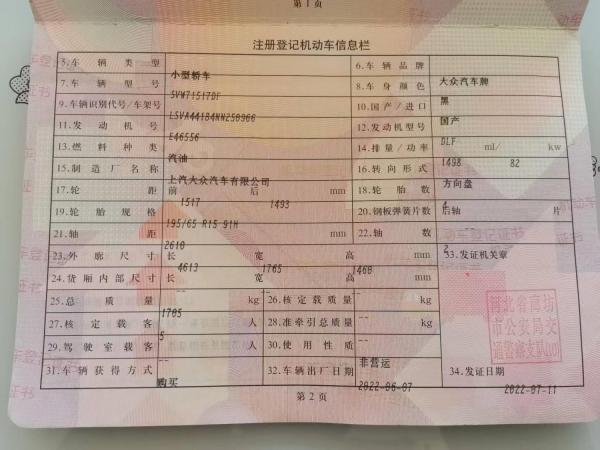 第1页
注册登记机动车信息栏
5.车辆类型 小型轿车 6.车辆品牌 大众汽车牌
7.车辆型号 SVW71517DF 8.车身颜色 黑
9.车辆识别代号/车架号 LSVA44184NN250966 10.国产/进口 国产
11.发动机号 E46556 12.发动机型号 DLF
13.燃料种类 汽油 14.排量/功率 1498 ml/ 82 kw
15.制造厂名称 上汽大众汽车有限公司 16.转向形式 方向盘
17.轮距 前 1517 后 1493 mm 18.轮胎数 4
19.轮胎规格 195/65 R15 91H 20.钢板弹簧片数 后轴 -- 片
21.轴距 2610 mm 22.轴数 2
23.外廓尺寸 长 4613 宽 1765 高 1460 mm 33.发证机关章
24.货厢内部尺寸 长 -- 宽 -- 高 -- mm
25.总质量 1705 kg 26.核定载质量 -- kg
27.核定载客 5 人 28.准牵引总质量 -- kg
29.驾驶室载客 -- 人 30.使用性质 非营运
31.车辆获得方式 购买 32.车辆出厂日期 2022-06-07 34.发证日期 2022-07-11
河北省廊坊
市公安局交
通警察支队
第2页